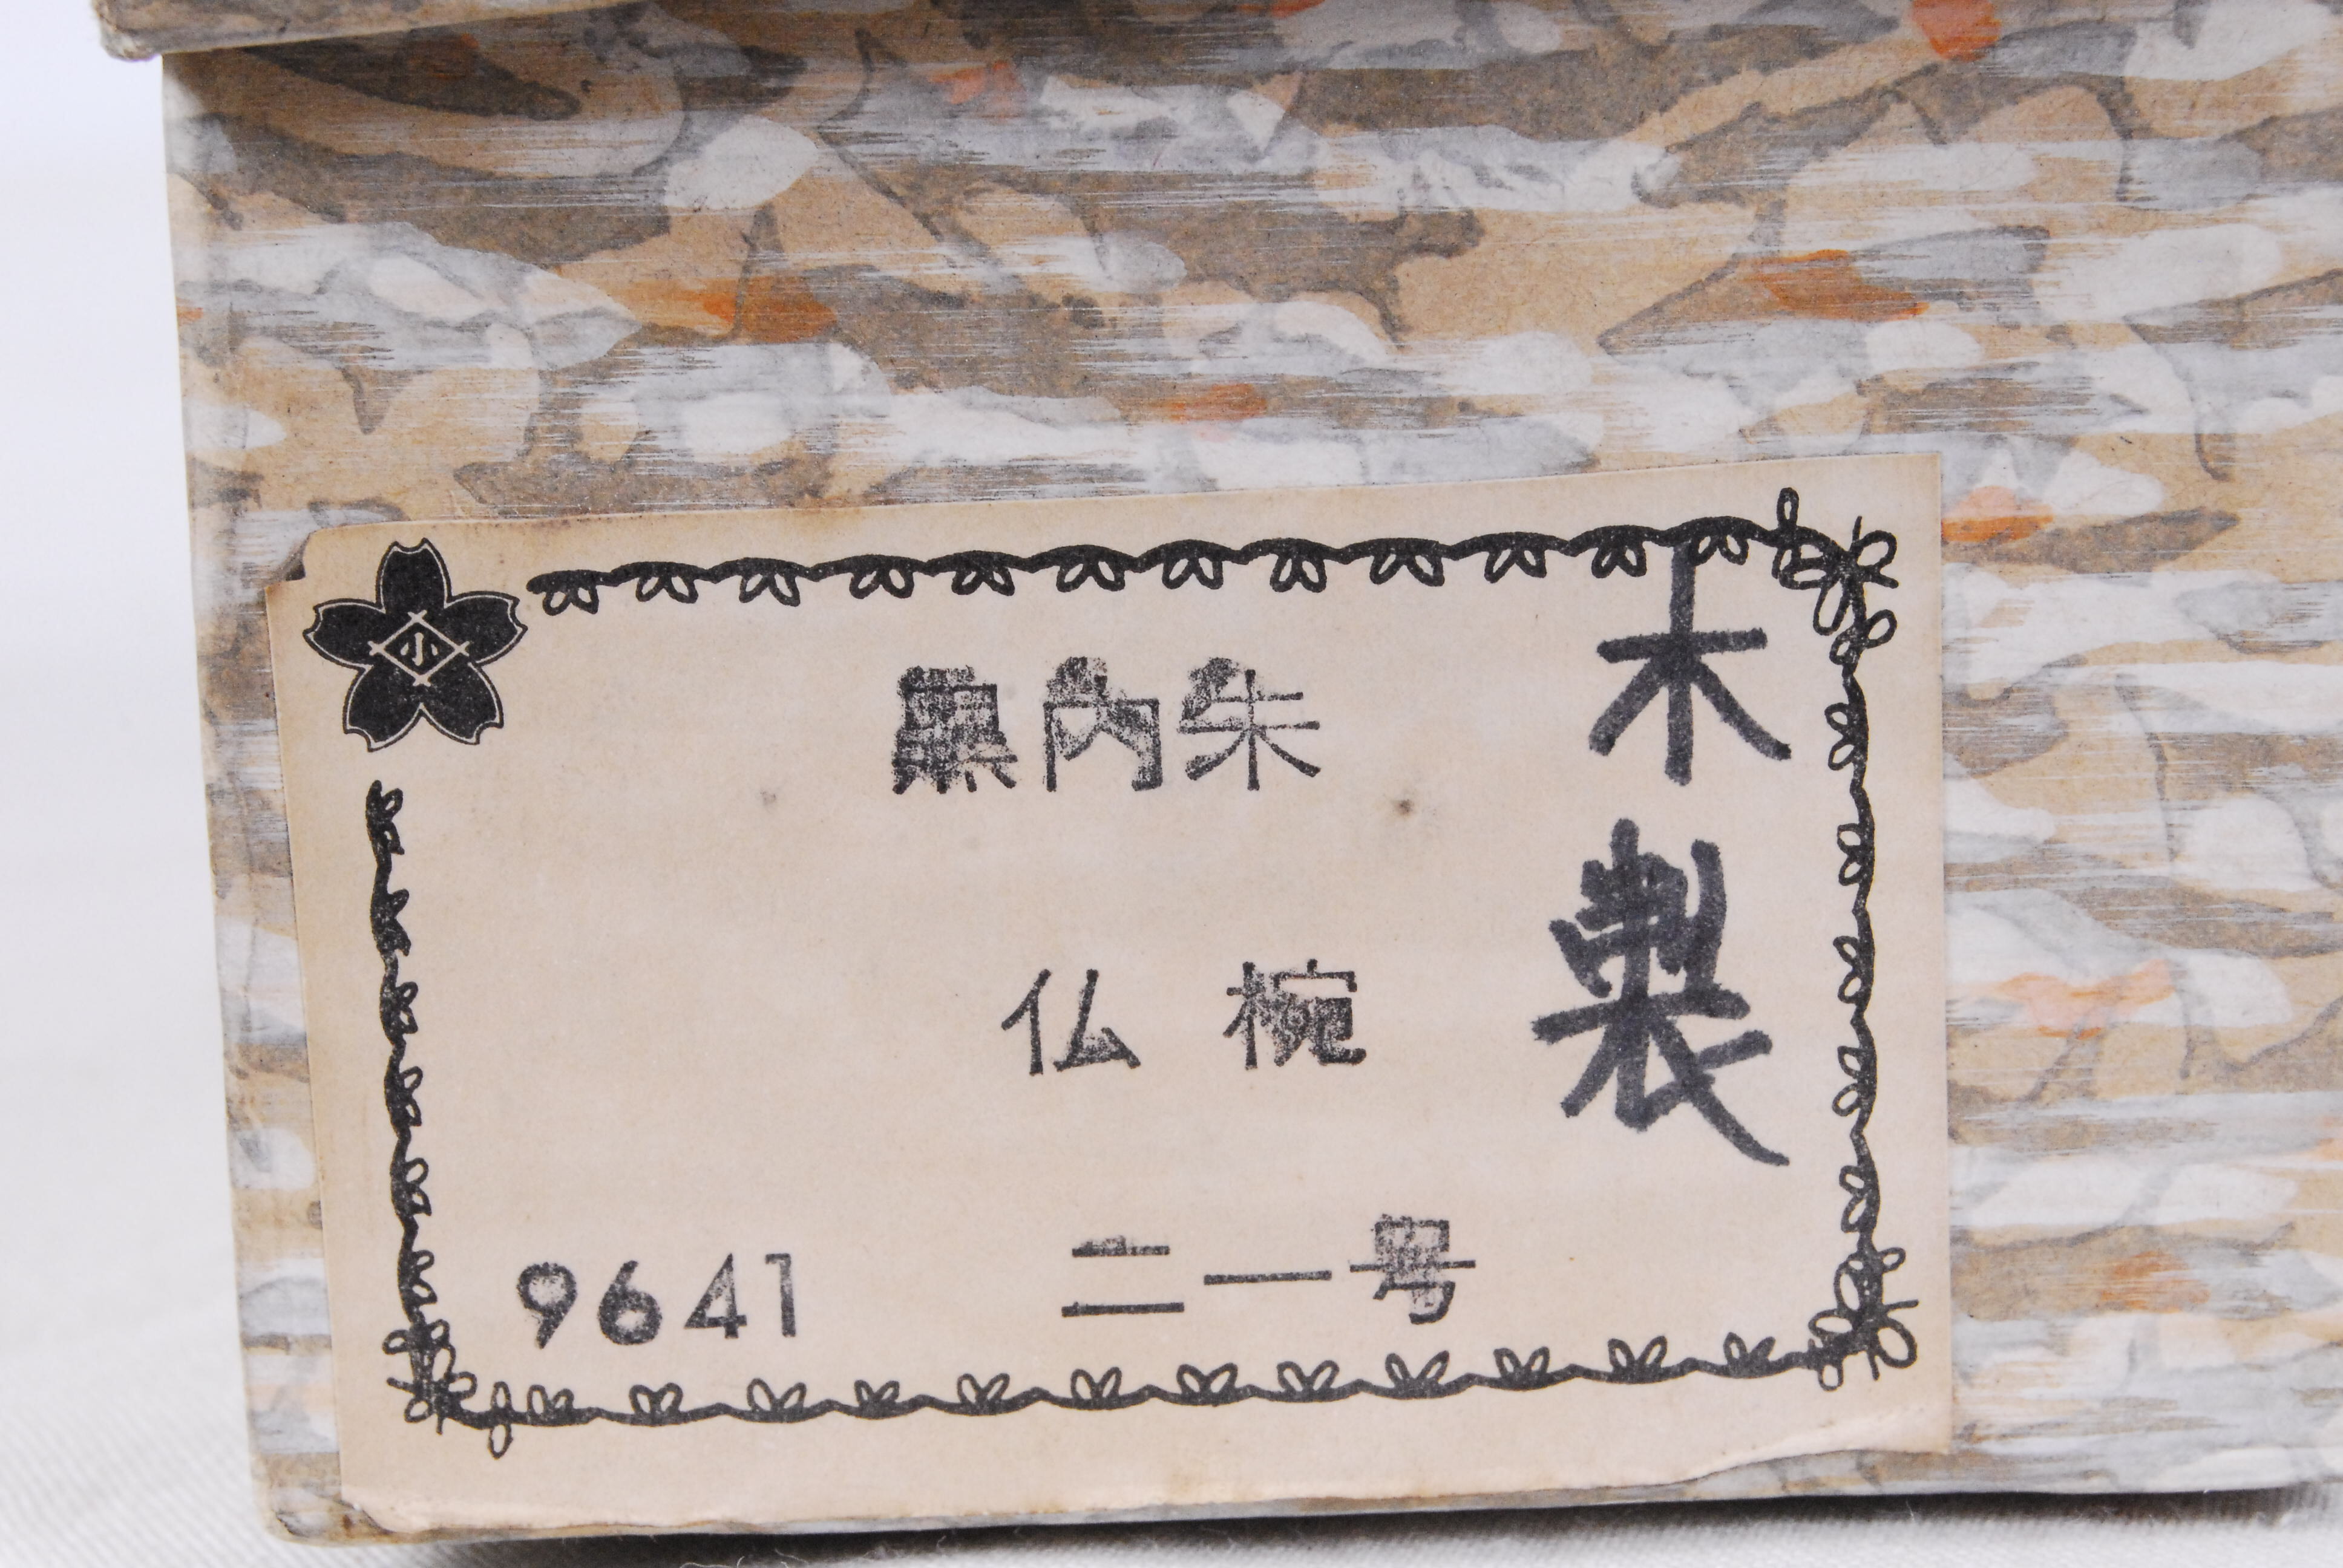 小
黒内朱
仏椀
二一号
9641
木製